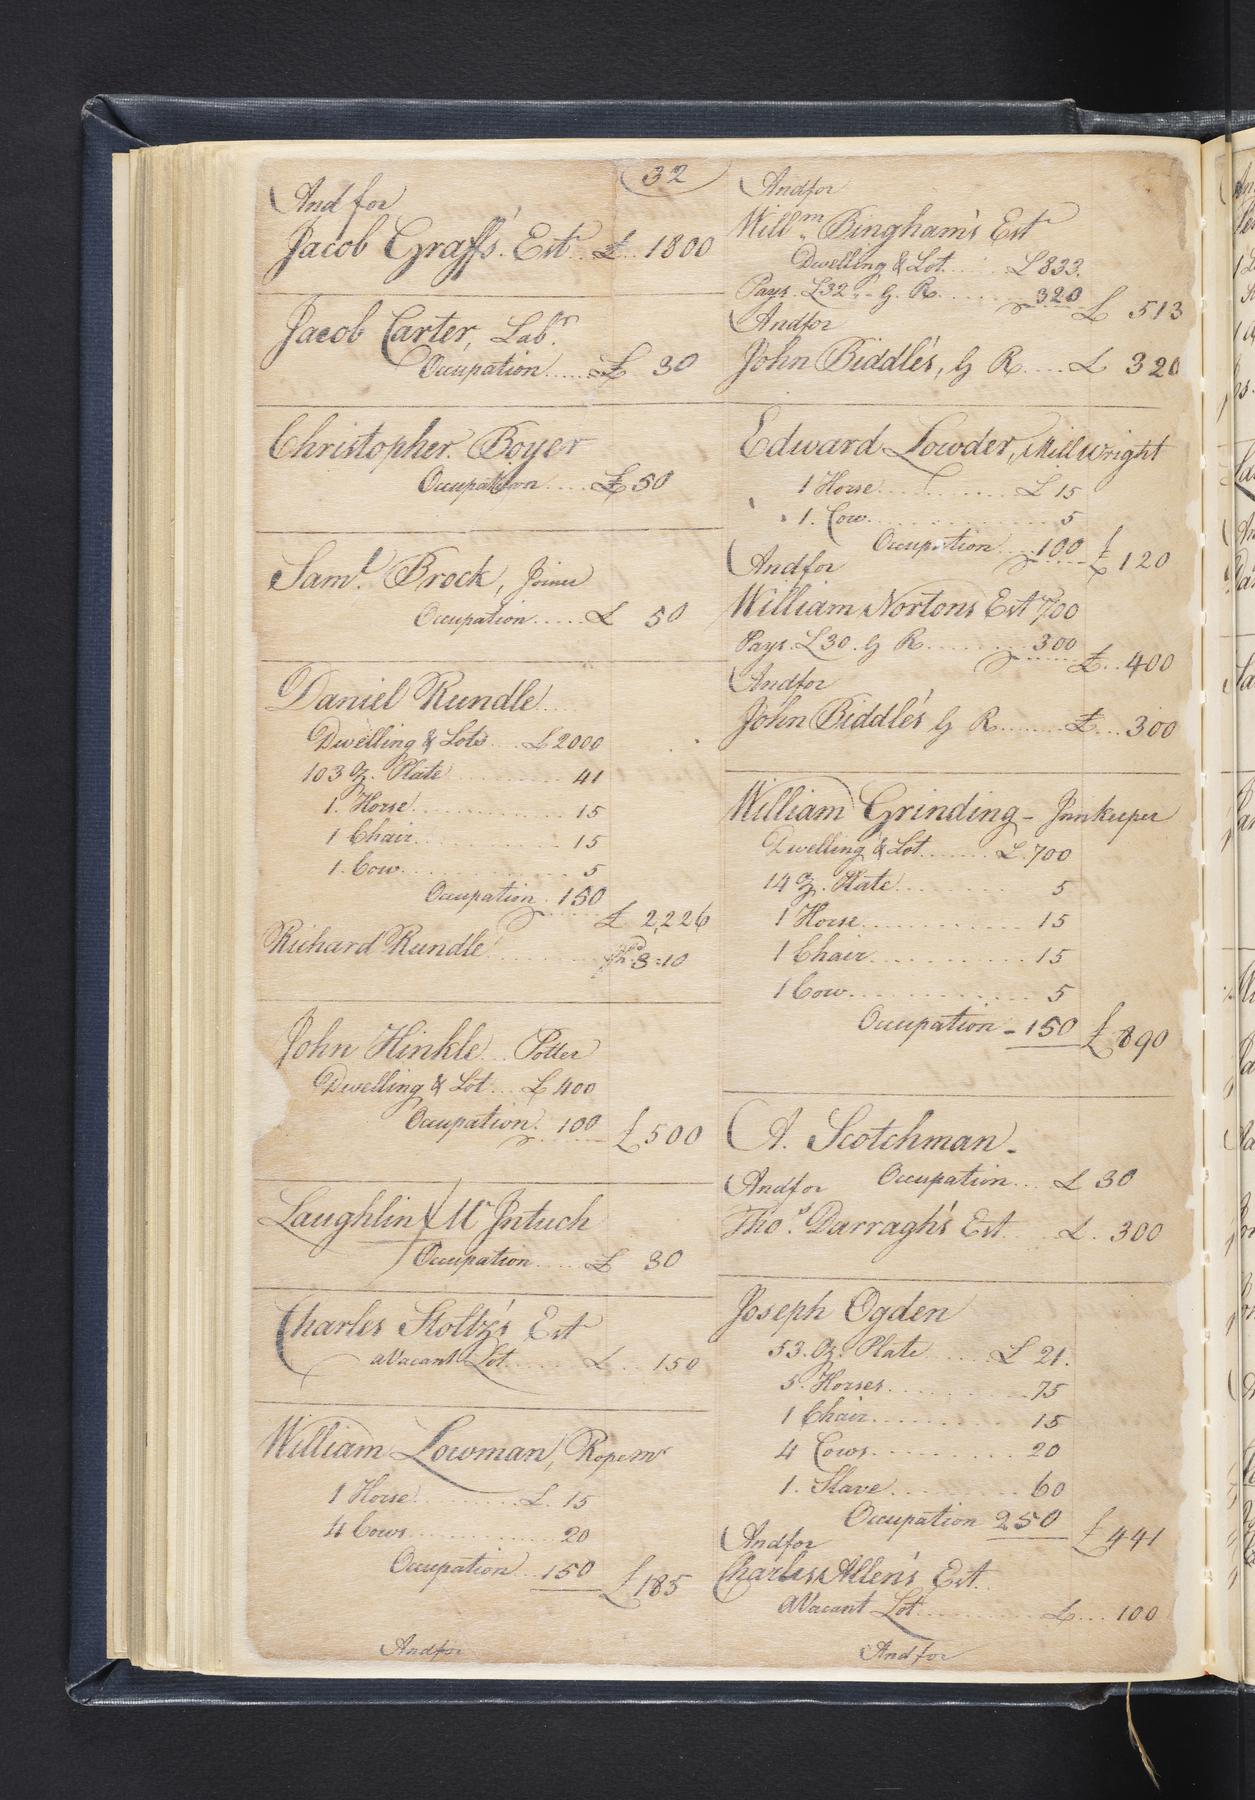 32
And for
Jacob Graff's Est.. £.. 1800
Jacob Carter, Labr.
Occupation..... £ 30
Christopher. Boyer
Occupation.... £ 50
Saml. Brock, Joiner
Occupation..... £ 50
Daniel Rundle....
Dwelling & Lots.... £2000
103 oz. Plate........... 41
1. Horse............. 15
1 Chair............. 15
1. Cow............. 5
Occupation. 150
£ 2,226
Richard Rundle.......... 3:10
John Hinkle... Potter
Dwelling & Lot... £ 400
Occupation. 100 £500
Laughlin McIntuch
Occupation.... £ 30
Charles Stoltz's Est
a Vacant Lot...... £... 150
William Lowman, Ropemr
1 Horse......... £. 15
4 Cows............ 20
Occupation.. 150 £185
And for
And for
Willm. Bingham's Est
Dwelling & Lot..... £833.
Pays. £32 .. G. R....... 320 £ 513
And for
John Biddle's, G R.... £ 320
Edward Lowder, Millwright
1 Horse........... £ 15
1. Cow............. 5
Occupation... 100 £120
And for
William Nortons Est 700
Pays. £30. G R........ 300 £.. 400
And for
John Biddle's G R....... £... 300
William Grinding - Innkeeper
Dwelling & Lot....... £.700
14 oz. Plate......... 5
1 Horse............ 15
1 Chair............ 15
1 Cow............. 5
Occupation - 150 £890
A. Scotchman.
Occupation... £ 30
And for
Thos. Darragh's Est.... £. 300
Joseph Ogden
53. oz. Plate..... £ 21.
5. Horses.......... 75
1 Chair........... 15
4 Cows........... 20
1. Slave........... 60
Occupation 250 £441
And for
Charles Allen's Est..
a Vacant Lot.......... £... 100
And for